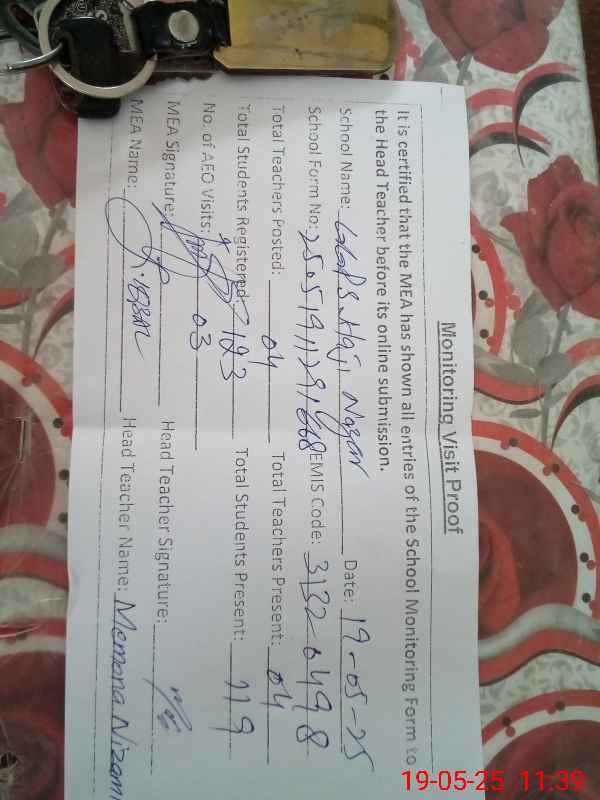 Monitoring Visit Proof
It is certified that the MEA has shown all entries of the School Monitoring Form to
the Head Teacher before its online submission.
School Name: Nagar Date: 19-05-25
School Form No: EMIS Code: 31320498
Total Teachers Posted: 04 Total Teachers Present: 04
Total Students Registered: 123 Total Students Present: 119
No. of AEO Visits: 03
MEA Signature: Head Teacher Signature:
MEA Name: Head Teacher Name: Memona Nizami
19-05-25 11:39